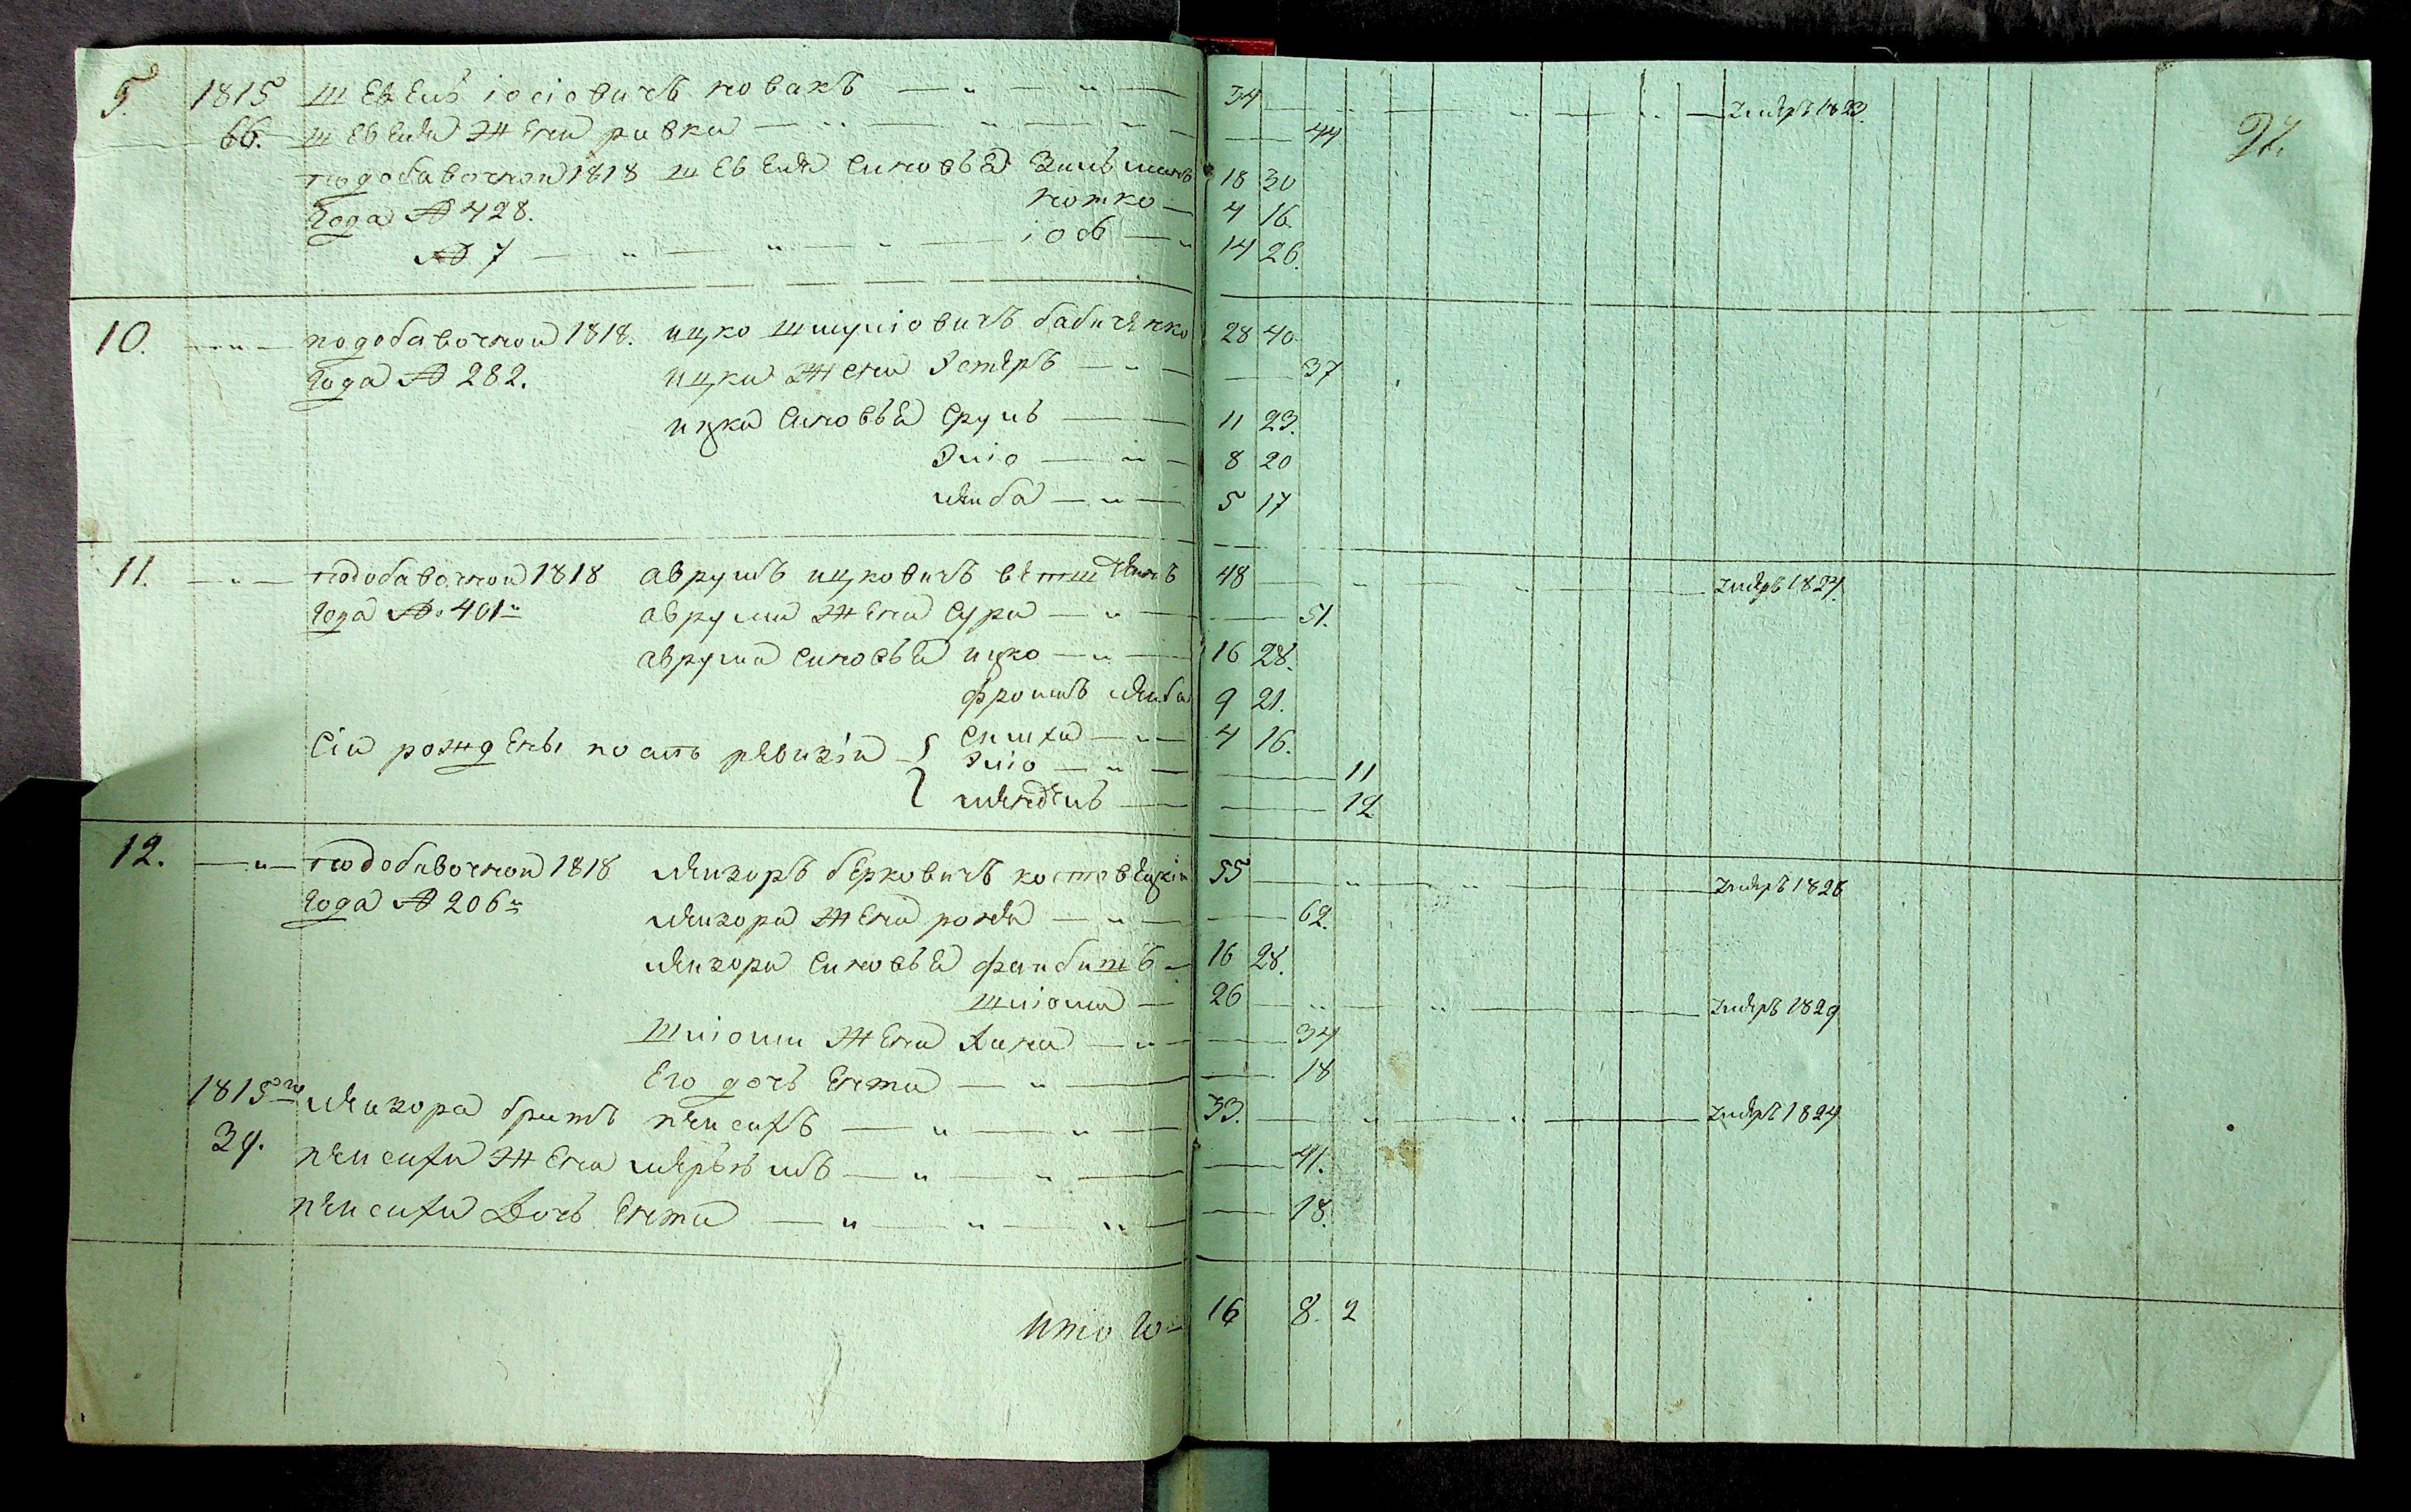 9. 1815 Шевель іосіовичъ новакъ 34 умеръ 1823.
66. Шевеля жена ривка 44
По добавочной 1818 Шевеля сыновья Зельманъ 18 30
года № 428. нотко 4 16.
№ 7 іось 14 26.
10. По добавочной 1818. ицко шмуліовичъ бабиченко 28 40
года № 282. ицка жена Эстеръ 37
ицка сыновья сруль 11 23.
Эліо 8 20
лейба 5 17
11. По добавочной 1818 аврумъ ицковичъ 48 умеръ 1827.
года № 401 аврума жена сура 51.
аврума сыновья ицко 16 28.
фроимъ лейба 9 21.
симха 4 16.
Сіи рождены послѣ ревизіи Эліо 11
мендель 12
12. По добавочной 1818 лейзоръ берковичъ 55 умеръ 1828
года № 206 лейзора жена 62.
лейзора сыновья файбишъ 16 28.
шліома 26 умеръ 1829
Шліомы жена хана 34
его дочь ента 18
1815го лейзора братъ пейсахъ 33. умеръ 1824
39. пейсаха жена 41.
пейсаха дочь ента 18.
Итого 16 8. 2
97.